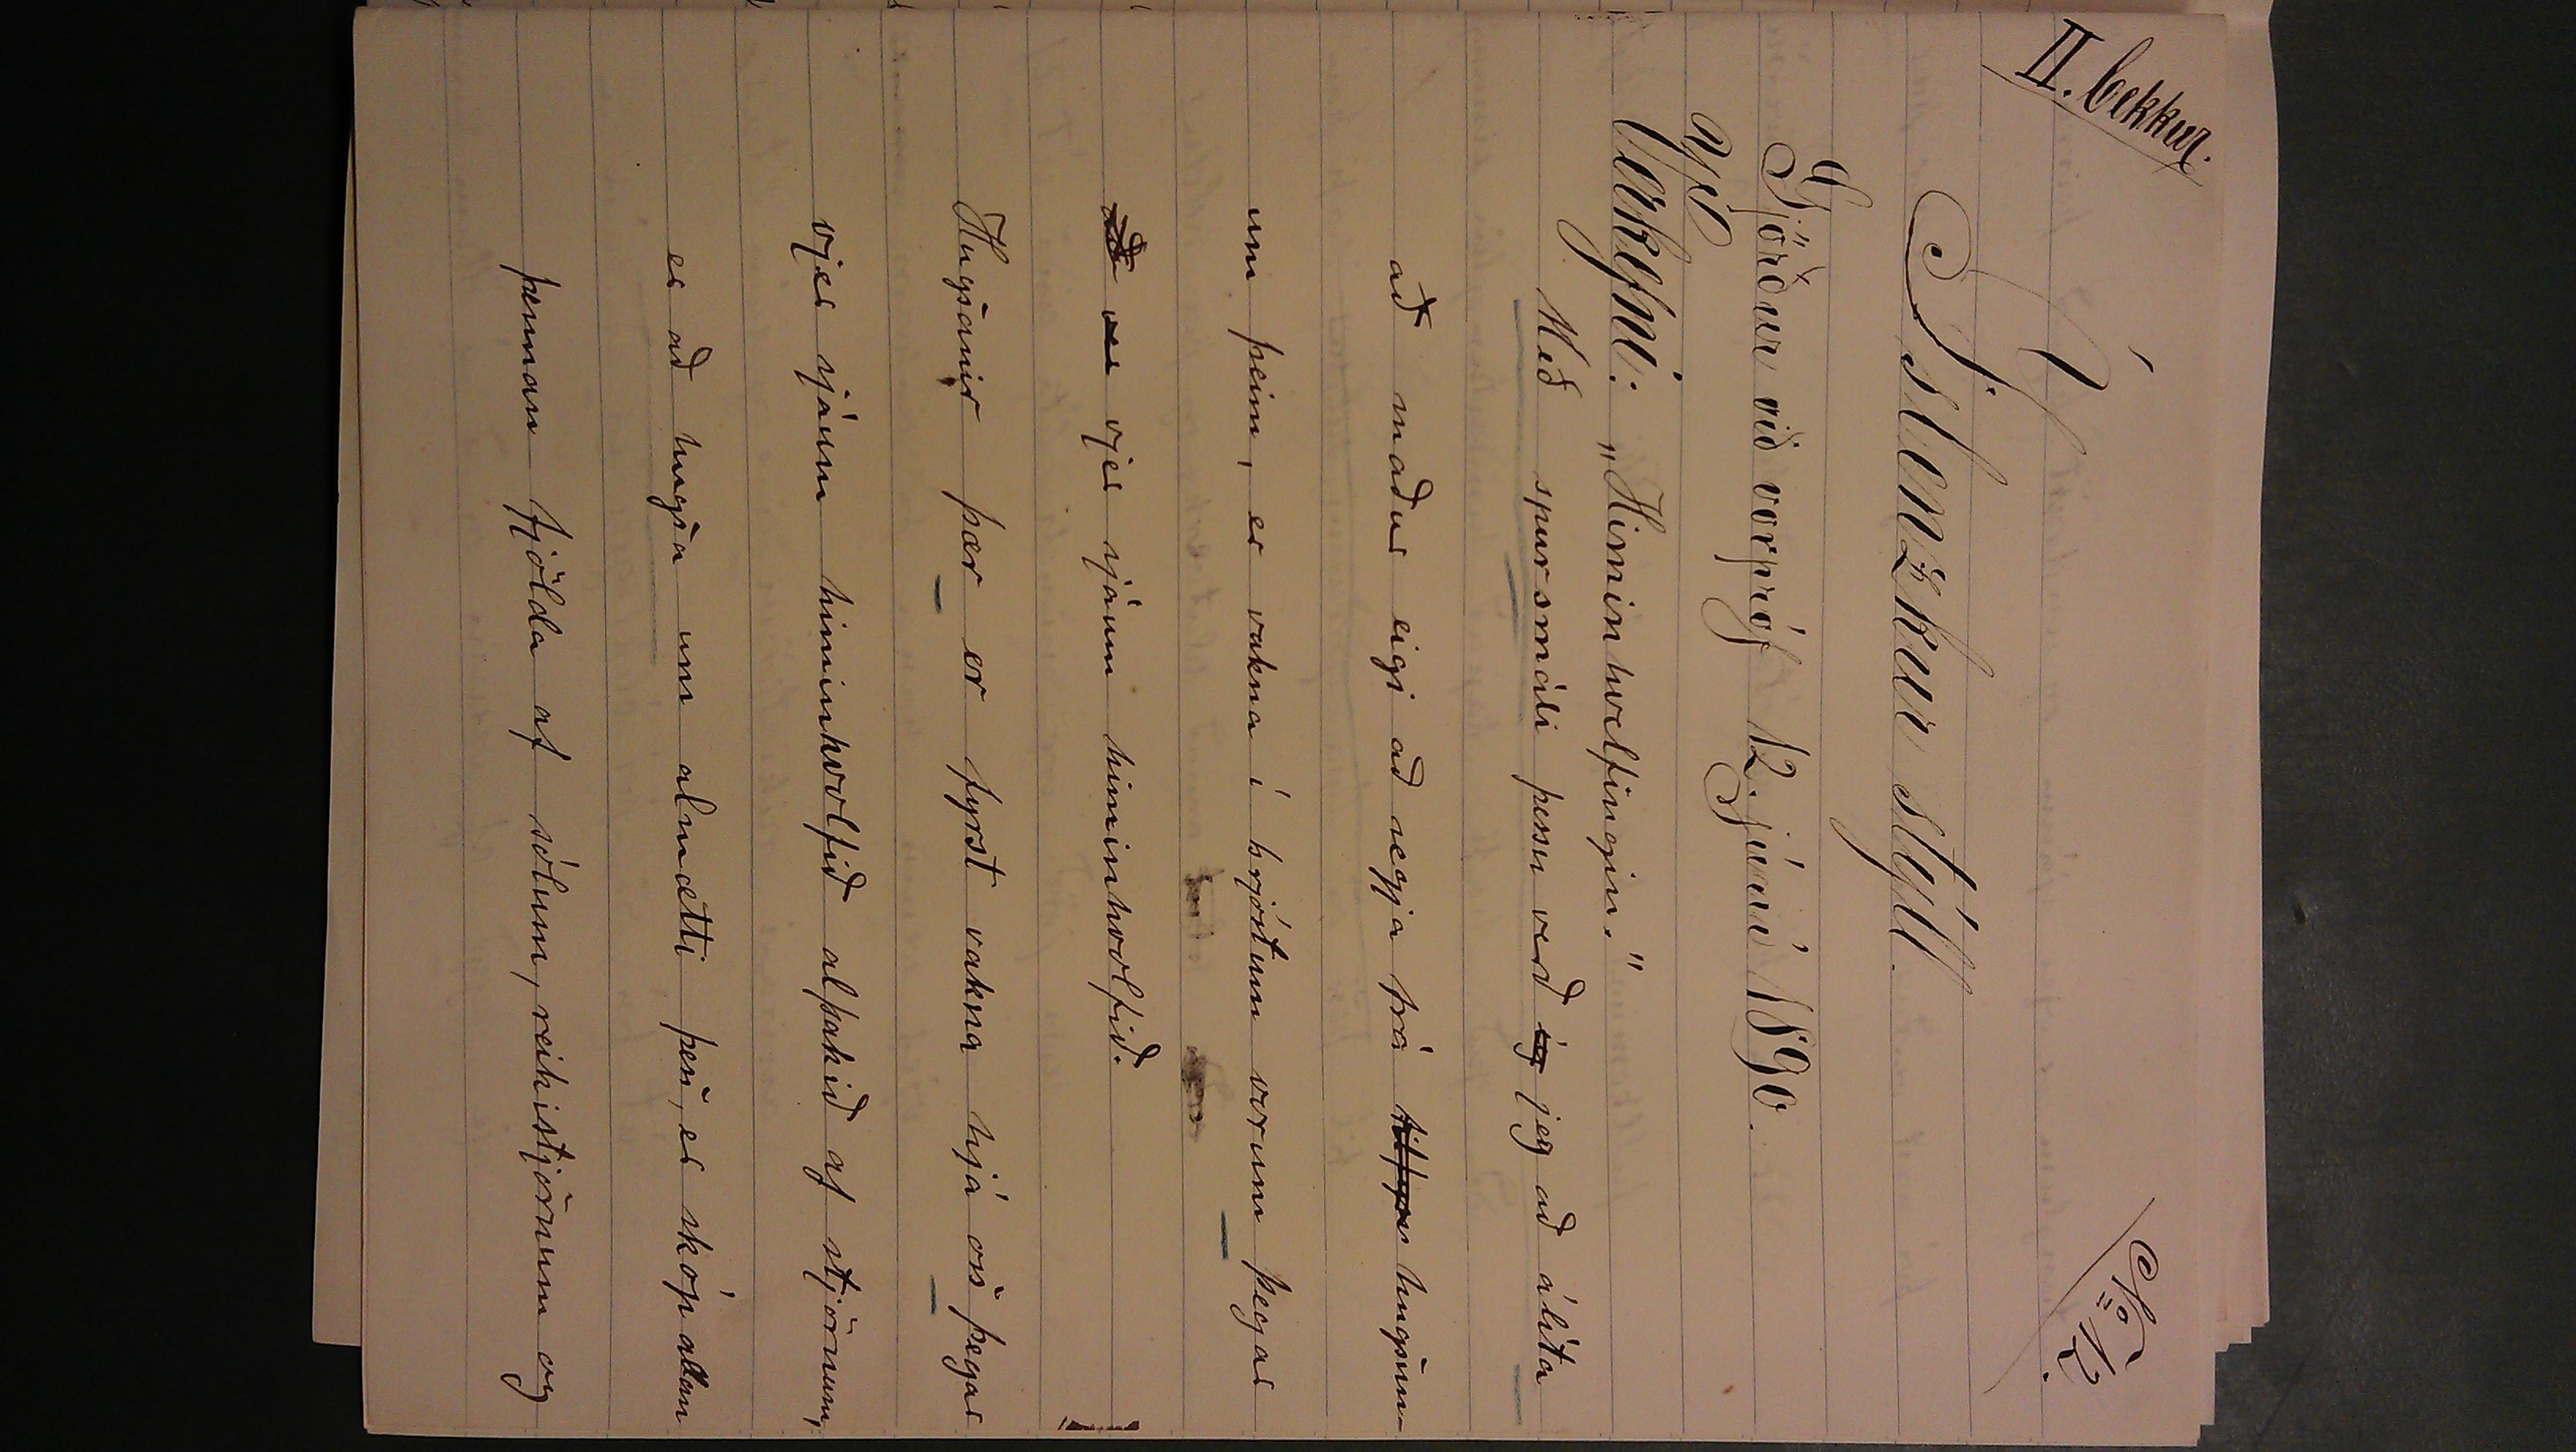 II. bekkur.
No 12.
Íslenzkur stýll.
Gjörður við vorpróf 12. júní 1890.
Yfir
Verkefni: „Himinhvelfingin."
Með spursmáli þessu verð jeg að álíta
að maður eigi að segja frá hugsun-
um þeim, er vakna í brjóstum vorum þegar
vjer sjáum himinhvolfið.
Hugsanir þær er fyrst vakna hjá oss þegar
vjer sjáum himinhvolfið alþakið af stjörnum,
er að hugsa um almætti þess, er skóp allan
þennan fjölda af sólum, reikistjörnum og